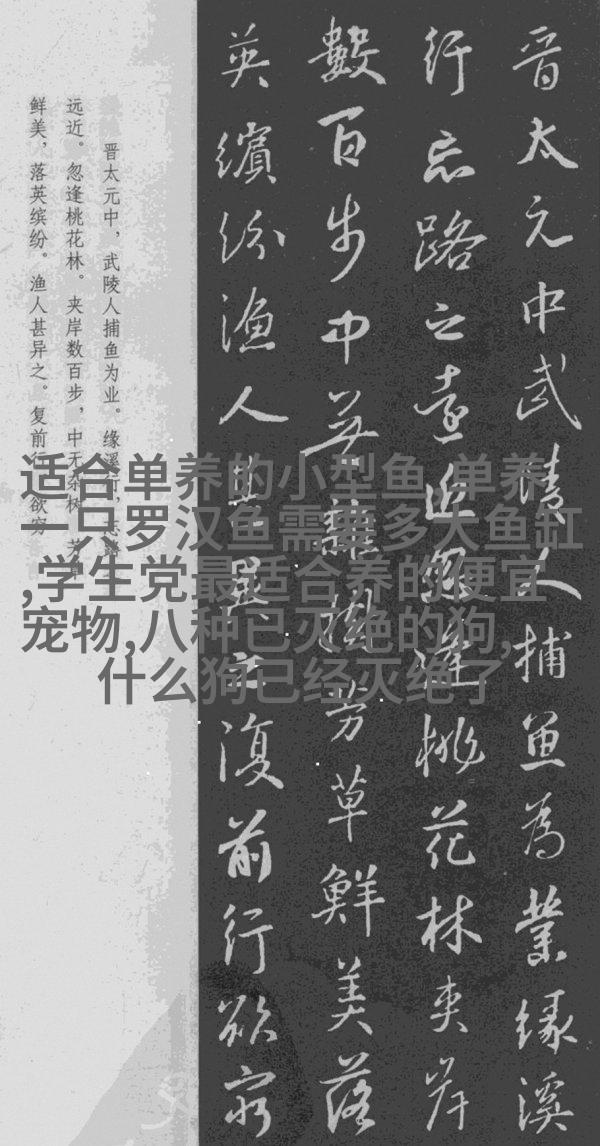 晋太元中武陵人捕魚為業緣溪
行忘路之遠近忽逢桃花林夾岸
數百步中無雜樹芳草鮮美落
英繽紛漁人甚異之復前行欲窮
晋太元中，武陵人捕鱼为业。缘溪行，忘路之
远近。忽逢桃花林。夹岸数百步，中无杂树，芳草
鲜美，落英缤纷。渔人甚异之。复前行，欲穷
适合单养的小型鱼,单养
一只罗汉鱼需要多大鱼缸
,学生党最适合养的便宜
宠物,八种已灭绝的狗,
什么狗已经灭绝了